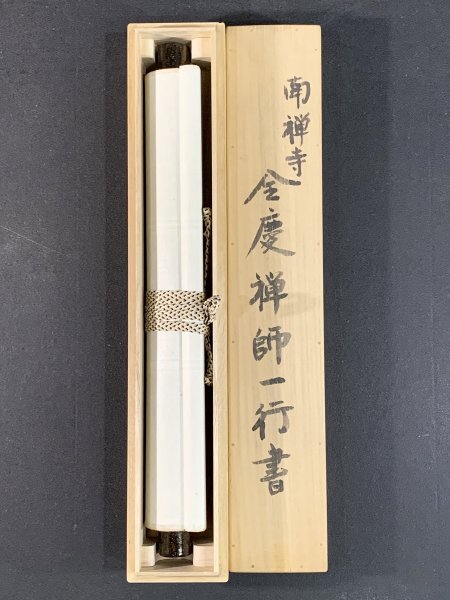 南禅寺
全慶禅師一行書